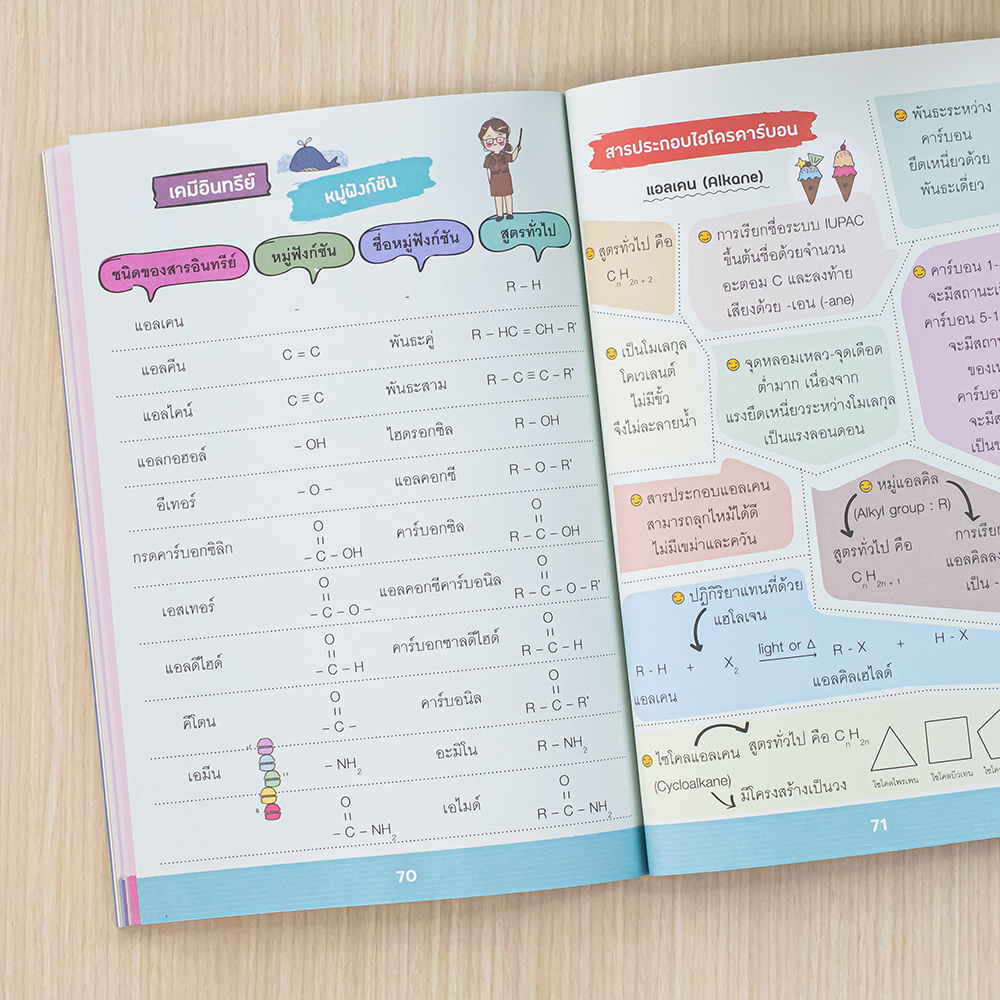 เคมีอินทรีย์
หมู่ฟังก์ชัน
ชนิดของสารอินทรีย์ หมู่ฟังก์ชัน ชื่อหมู่ฟังก์ชัน สูตรทั่วไป
แอลเคน - - R – H
แอลคีน C = C พันธะคู่ R – HC = CH – R'
แอลไคน์ C ≡ C พันธะสาม R – C ≡ C – R'
แอลกอฮอล์ – OH ไฮดรอกซิล R – OH
อีเทอร์ – O – แอลคอกซี R – O – R'
O O
กรดคาร์บอกซิลิก – C – OH คาร์บอกซิล R – C – OH
O O
เอสเทอร์ – C – O – แอลคอกซีคาร์บอนิล R – C – O – R'
O O
แอลดีไฮด์ – C – H คาร์บอกซาลดีไฮด์ R – C – H
O O
คีโตน – C – คาร์บอนิล R – C – R'
เอมีน – NH₂ อะมิโน R – NH₂
O O
– C – NH₂ เอไมด์ R – C – NH₂
70
สารประกอบไฮโดรคาร์บอน
แอลเคน (Alkane)
สูตรทั่วไป คือ
CₙH₂ₙ₊₂
การเรียกชื่อระบบ IUPAC
ขึ้นต้นชื่อด้วยจำนวน
อะตอม C และลงท้าย
เสียงด้วย -เอน (-ane)
พันธะระหว่าง
คาร์บอน
ยึดเหนี่ยวด้วย
พันธะเดี่ยว
เป็นโมเลกุล
โคเวเลนต์
ไม่มีขั้ว
จึงไม่ละลายน้ำ
จุดหลอมเหลว-จุดเดือด
ต่ำมาก เนื่องจาก
แรงยึดเหนี่ยวระหว่างโมเลกุล
เป็นแรงลอนดอน
คาร์บอน 1-
จะมีสถานะเ
คาร์บอน 5-1
จะมีสถาน
ของเ
คาร์บอ
จะมีส
เป็นข
สารประกอบแอลเคน
สามารถลุกไหม้ได้ดี
ไม่มีเขม่าและควัน
หมู่แอลคิล
(Alkyl group : R)
สูตรทั่วไป คือ
CₙH₂ₙ₊₁
การเรีย
แอลคิลล
เป็น -
ปฏิกิริยาแทนที่ด้วย
แฮโลเจน
R - H + X₂ light or Δ R - X + H - X
แอลเคน แอลคิลเฮไลด์
ไซโคลแอลเคน สูตรทั่วไป คือ CₙH₂ₙ
(Cycloalkane)
มีโครงสร้างเป็นวง
ไซโคลโพรเพน ไซโคลบิวเทน ไซโค
71